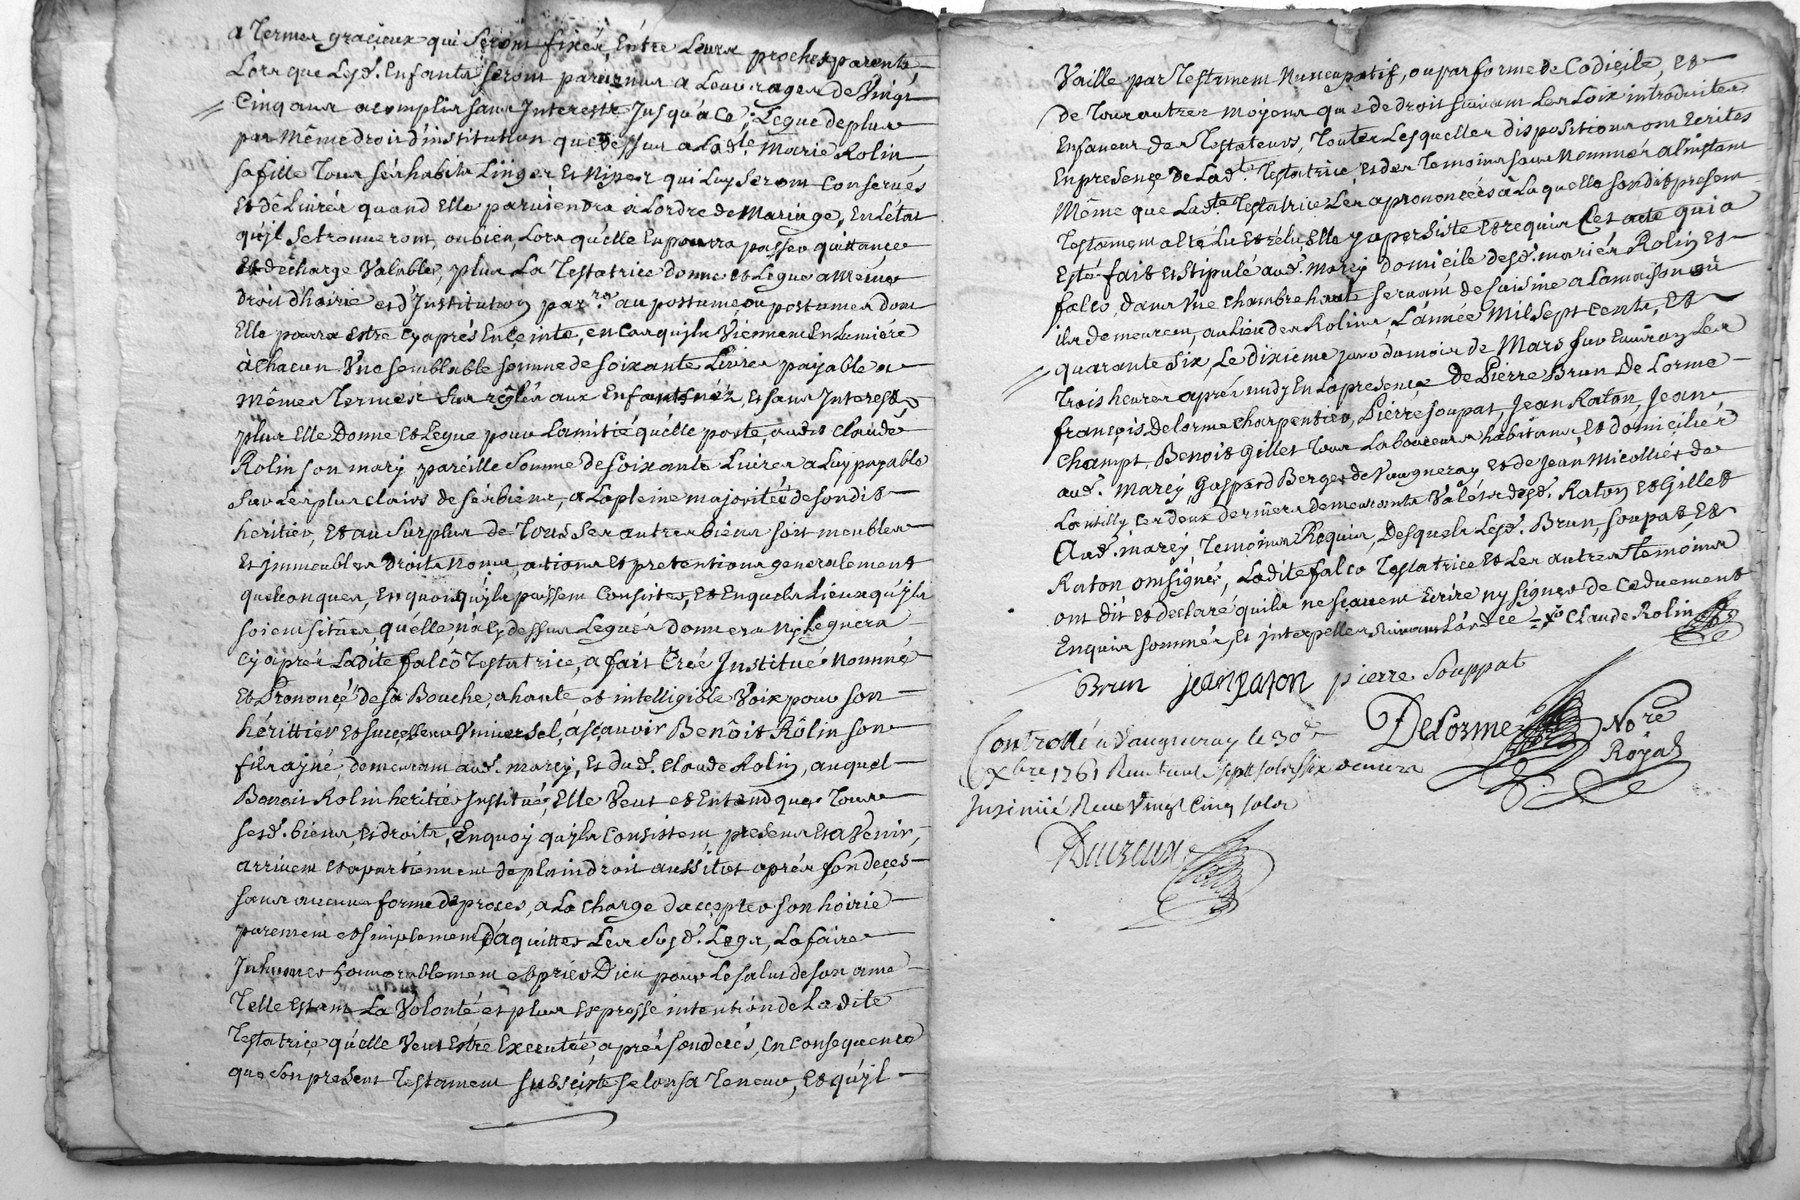 a Termes gracieux qui seront fixés, Entre Leurs proches parents
Lors que Lesd. Enfants seront parvenus a Leurs ages de Vingt
Cinq ans acomplis sans Interests Jusqu'à Ce; Legue de plus
par même droit d'institution que dessus a Lad.te Marie Rolin
sa fille Tous sés habits Linges Et Nipes qui Luy seront Conservés
Et dêLivrés quand Elle parviendra a Lordre de Mariage, En L'état
qu'jl se trouveront, ou bien Lors qu'elle En pourra passer quittance
Et décharge Valable, plus La Testatrice donne et Legue a Même
droit d'hoirie et d'Institution par.re au postume ou postumes dont
Elle pourra Estre Cy aprés Enceinte, en Cas qu'jls Viennent En Lumiére
à Chacun Vne semblable somme de soixante Livres payable a
Mêmes Termes sus réglés aux Enfants néz, et sans Interests,
plus Elle Donne et Legue pour Lamitié qu'elle porte, audit Claude
Rolin son mary pareille Somme de soixante Livres a Luy payable
sur Les plus clairs de sés biens, a La pleine majoritée de sondit
heritier, Et au Surplus de Tous Ses autres biens soit meubles
Et jmmeubles Droits Noms, actions Et pretentions generalement
quelconques, En quoi qu'jls puissent Consister, et En quels Lieux qu'jls
soient situés, qu'elle n'a Cy dessus Legués donnera Ny Leguera
Cy aprés Ladite falcô Testatrice, a fait Creé Institué Nommé
Et Prononcé de sa Bouche, a haute et intelligible Voix pour son
hérittier et successeur Vniversel, asçavoir Benôit Rôlin son
fils ayné, demeurant aud. marcy, Et dud. Claude Rolin, auquel
Benoit Rolin heritier Institué, Elle Veut et Entend que Tous
sesd. biens, Et droits, En quoy qu'jls Consistent, presens Et a Venir,
arrivent Et apartiennent de plain droit aussitot aprés son deçes
sans aucune forme de proces, a La Charge dacepter son hoirie
purement et simplement d'aquitter Les Susd. Legs, La faire
Inhumer honnorablement et prier Dieu pour Le salut de son ame
Telle Estant La Volonté et plus Expresse intention de La dite
Testatrice qu'elle Veut Estre Executée, aprés son decés, En Consequence
que son present Testament subsiste selon sa Teneur, Et qu'jl
Vaille par Testament Nuncupatif, ou par forme de Codicile, et
de Tous autres moyens que de droit suivant Les Loix introduites
En faveur des Testateurs, Toutes Lesquelles dispositions ont Ecrites
En presence de Lad.te Testatrice Et des Temoins sous Nommés a Linstant
Même que Lad.te Testatrice Les a prononcées à La quelle sondit present
Testament a Eté Lu Et rélu, Elle y a persisté et requis Cet acte qui a
Esté fait Et Stipulé aud. marcy domicile desd. mariés Rolin Et
falco, dans Vne Chambre haute servant de cuisine a La maison où
ils demeurent, au Lieu des Rolins L'année Mil sept Cents, Et
quarante six, Le dixieme jour du mois de Mars sur Environ Les
Trois heures aprés midy En La presençe de Pierre Brun De Lorme
françois delorme charpentier, Pierre soupat, Jean Raton, Jean
Champt, Benoit Gillet Tous Laboureurs habitans, Et domiciliés
aud. Marcy, Gaspard Berger de Vaugneray et de Jean Micollier de
Lantilly, Les deux derniers demeurants Valéts desd. Raton et Gillet
Aud. marcy, Temoins Requis, Desquels Lesd. Brun, soupat, Et
Raton ont signés, Ladite falco Testatrice Et Les autres Temoins
ont dit et declaré qu'ils ne sçavent Ecrire ny signer de Ce duement
Enquis sommés, Et jnterpellés Suivant L'ord.ce Claude Rolin
Brun jean Raton pierre Souppat
Delorme No.re
Royal
Controllé a Vaugneray le 30.e
xbre 1761 Recu sept sols six deniers
Insinué Recu Vingt Cinq sols